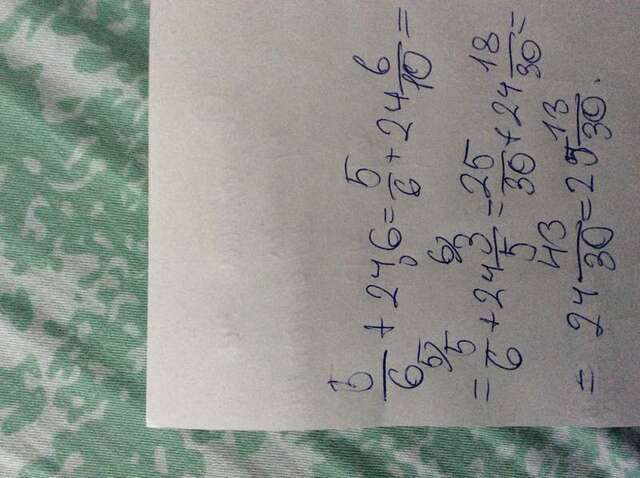 5/6 + 24,6 = 5/6 + 24 6/10 =
= 5/6 ⁵⁾ + 24 3/5 ⁶⁾ = 25/30 + 24 18/30 =
= 24 43/30 = 25 13/30.